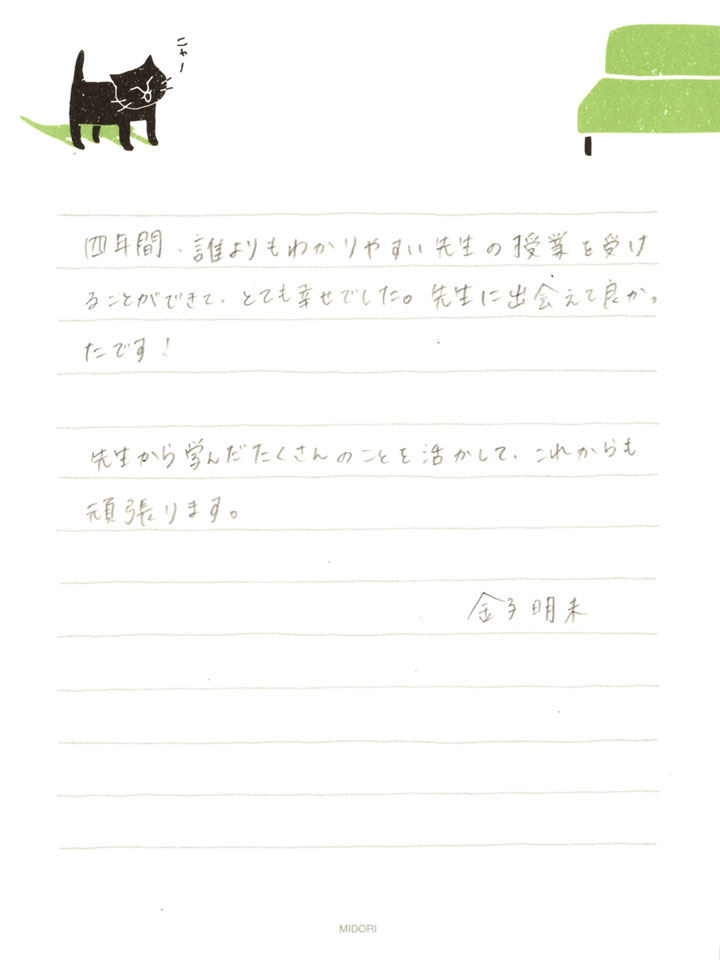 ニャー
四年間、誰よりもわかりやすい先生の授業を受け
ることができて、とても幸せでした。先生に出会えて良かっ
たです！
先生から学んだたくさんのことを活かして、これからも
頑張ります。
金子明未
MIDORI